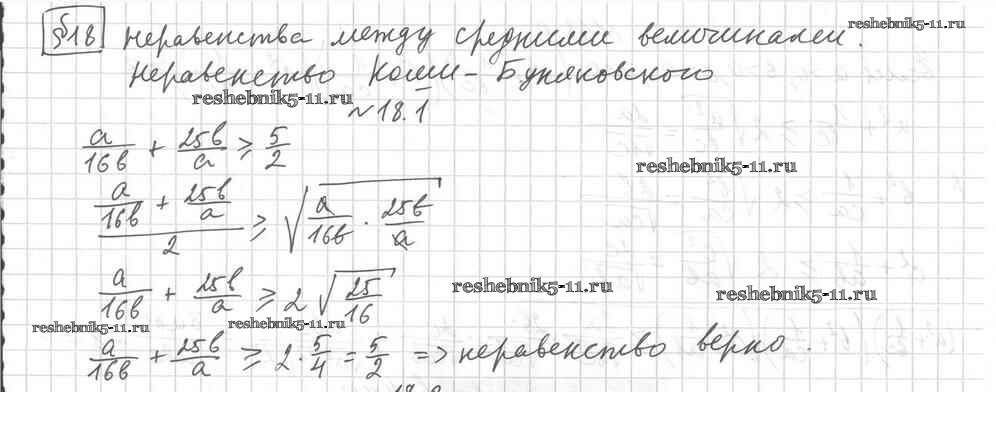 §18 Неравенства между средними величинами.
reshebnik5-11.ru
Неравенство Коши-Буняковского
reshebnik5-11.ru
№18.1
a/16b + 25b/a ≥ 5/2
reshebnik5-11.ru
(a/16b + 25b/a)/2 ≥ √(a/16b · 25b/a)
a/16b + 25b/a ≥ 2√(25/16)
reshebnik5-11.ru
reshebnik5-11.ru
reshebnik5-11.ru
reshebnik5-11.ru
a/16b + 25b/a ≥ 2·5/4 = 5/2 => неравенство верно.